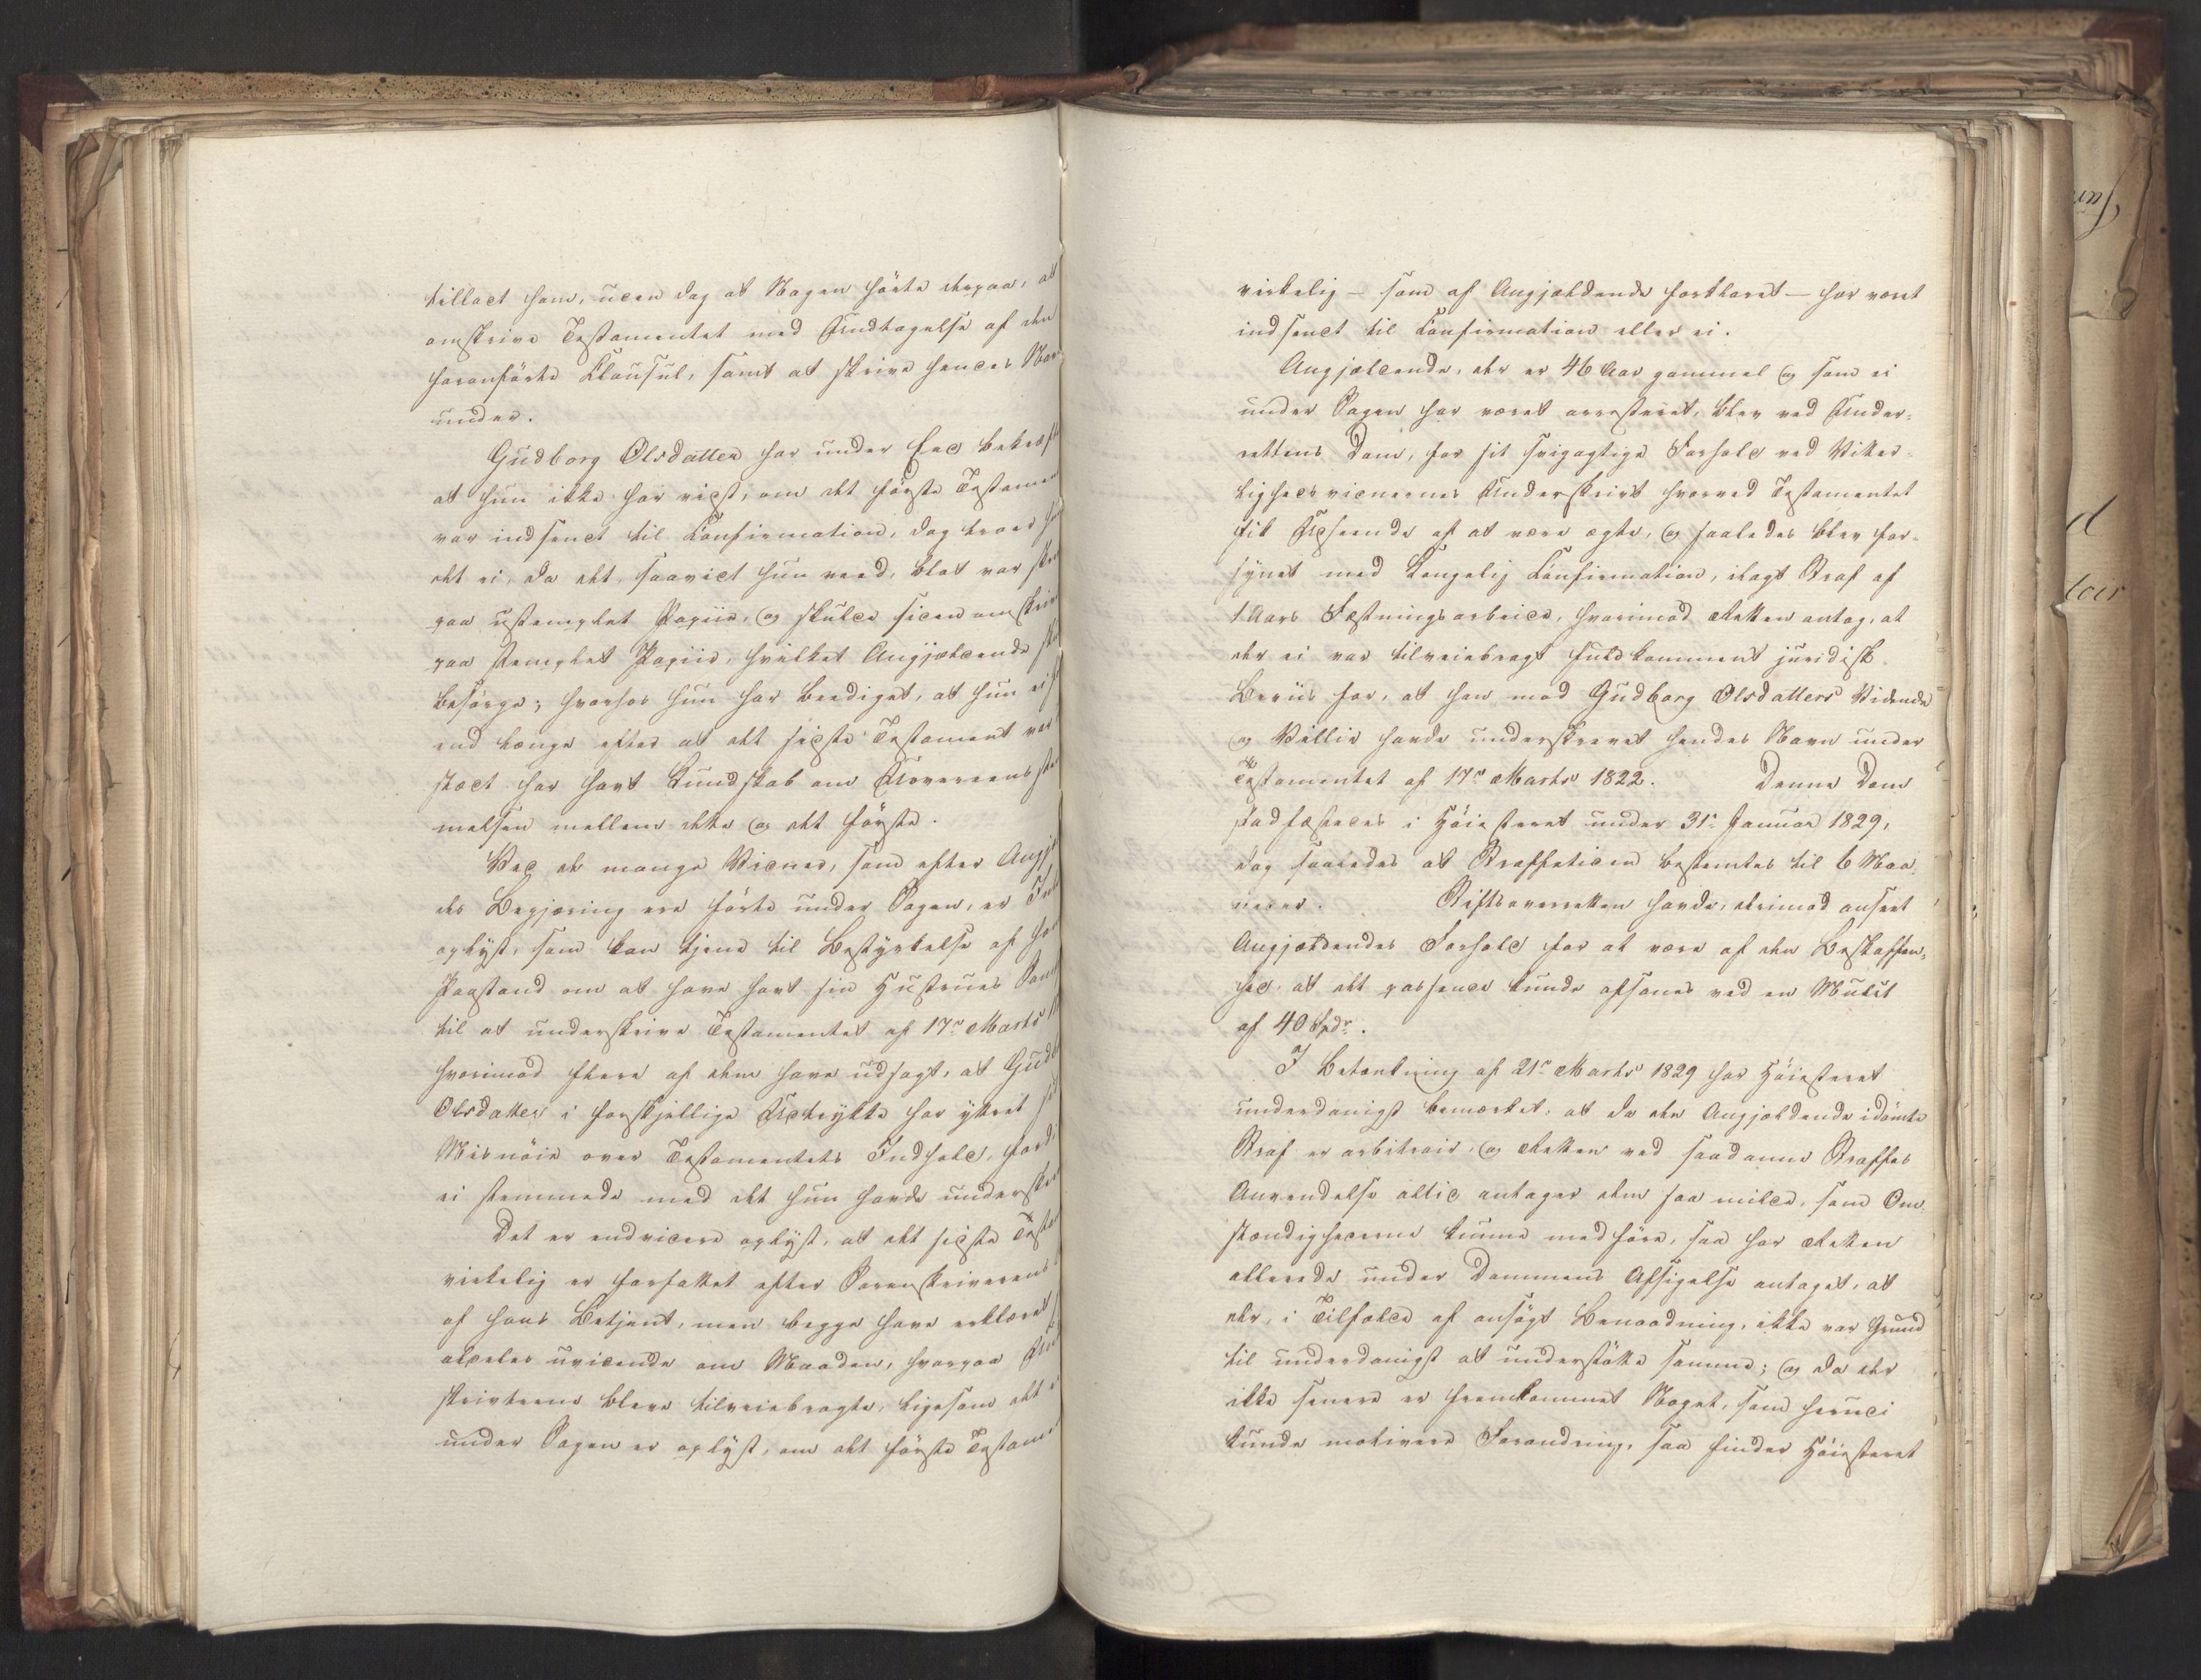 tilladt ham, uden dog at Nogen hørte derpaa, at
omskrive Testamentet med Undtagelse af den
foranførte Clausul, samt at skrive hendes Nav
under.
Gudborg Olsdatter har under Eed bekræft
at hun ikke har vidst, om det første Testamen
var indsendt til Confirmation, dog troer hun
det ei, da det, saavidt hun veed, blot var skre
paa ustemplet Papiir, og skulde siden omskriv
paa stemplet Papiir, hvilket Angjældende sk
besørge; hvorhos hun har beediget, at hun ei f
end længe efter at det sidste Testament var
stadt har havt Kundskab om Uovereensste
melsen mellem dette og det første.
Ved de mange Vidner, som efter Angjæ
des Begjæring ere førte under Sagen, er Intet
oplyst, som kan tjene til Bestyrkelse af hans
Paastand om at have havt sin Hustrues Sam
til at underskrive Testamentet af 17de Marts
hvorimod flere af dem have udsagt, at Gudb
Olsdatter i forskjellige Udtrykke har yttret sin
Misnøie over Testamentets Indhold, fordi
ei stemmede med det hun havde underskre
Det er endvidere oplyst, at det sidste Testa
virkelig er forfattet efter Sorenskriverens
af hans Betjent, men begge have erklæret
aldeles uvidende om Maaden, hvorpaa Und
skrivterne bleve tilveiebragte, ligesom det ei
under Sagen er oplyst, om det første Testame
virkelig – som af Angjældende forklaret – har været
indsendt til Confirmation eller ei.
Angjældende, der er 46 Aar gammel og som ei
under Sagen har været arresteret, blev ved Under-
rettens Dom, for sit svigagtige Forhold ved Vitter-
lighedsvidnernes Underskrivt hvorved Testamentet
fik Udseende af at være ægte, og saaledes blev for-
synet med Kongelig Confirmation, ilagt Straf af
1 Aars Fæstningsarbeide, hvorimod Retten antog, at
der ei var tilveiebragt fuldkomment juridisk
Beviis for, at han mod Gudborg Olsdatters Vidende
og Villie havde underskrevet hendes Navn under
Testamentet af 17de Marts 1822. Denne Dom
stadfæstedes i Høiesteret under 31te Januar 1829,
dog saaledes at Straffetiden bestemtes til 6 Maa-
neder. Stiftsoverretten havde, derimod anseet
Angjældendes Forhold for at være af den Beskaffen-
hed, at det passende kunde afsones ved en Mulct
af 40 Spdr.
I Betænkning af 21de Marts 1829 har Høiesteret
underdanigst bemærket: at da den Angjældende idømte
Straf er arbitrair, og Retten ved saadanne Straffes
Anvendelse altid antager dem saa milde, som Om-
stændighederne kunne medføre, saa har Retten
allerede under Dommens Afsigelse antaget, at
der, i Tilfælde af ansøgt Benaadning, ikke var Grund
til underdanigst at understøtte samme; og da der
ikke senere er fremkommet Noget, som herudi
kunde motivere Forandring, saa finder Høiesteret